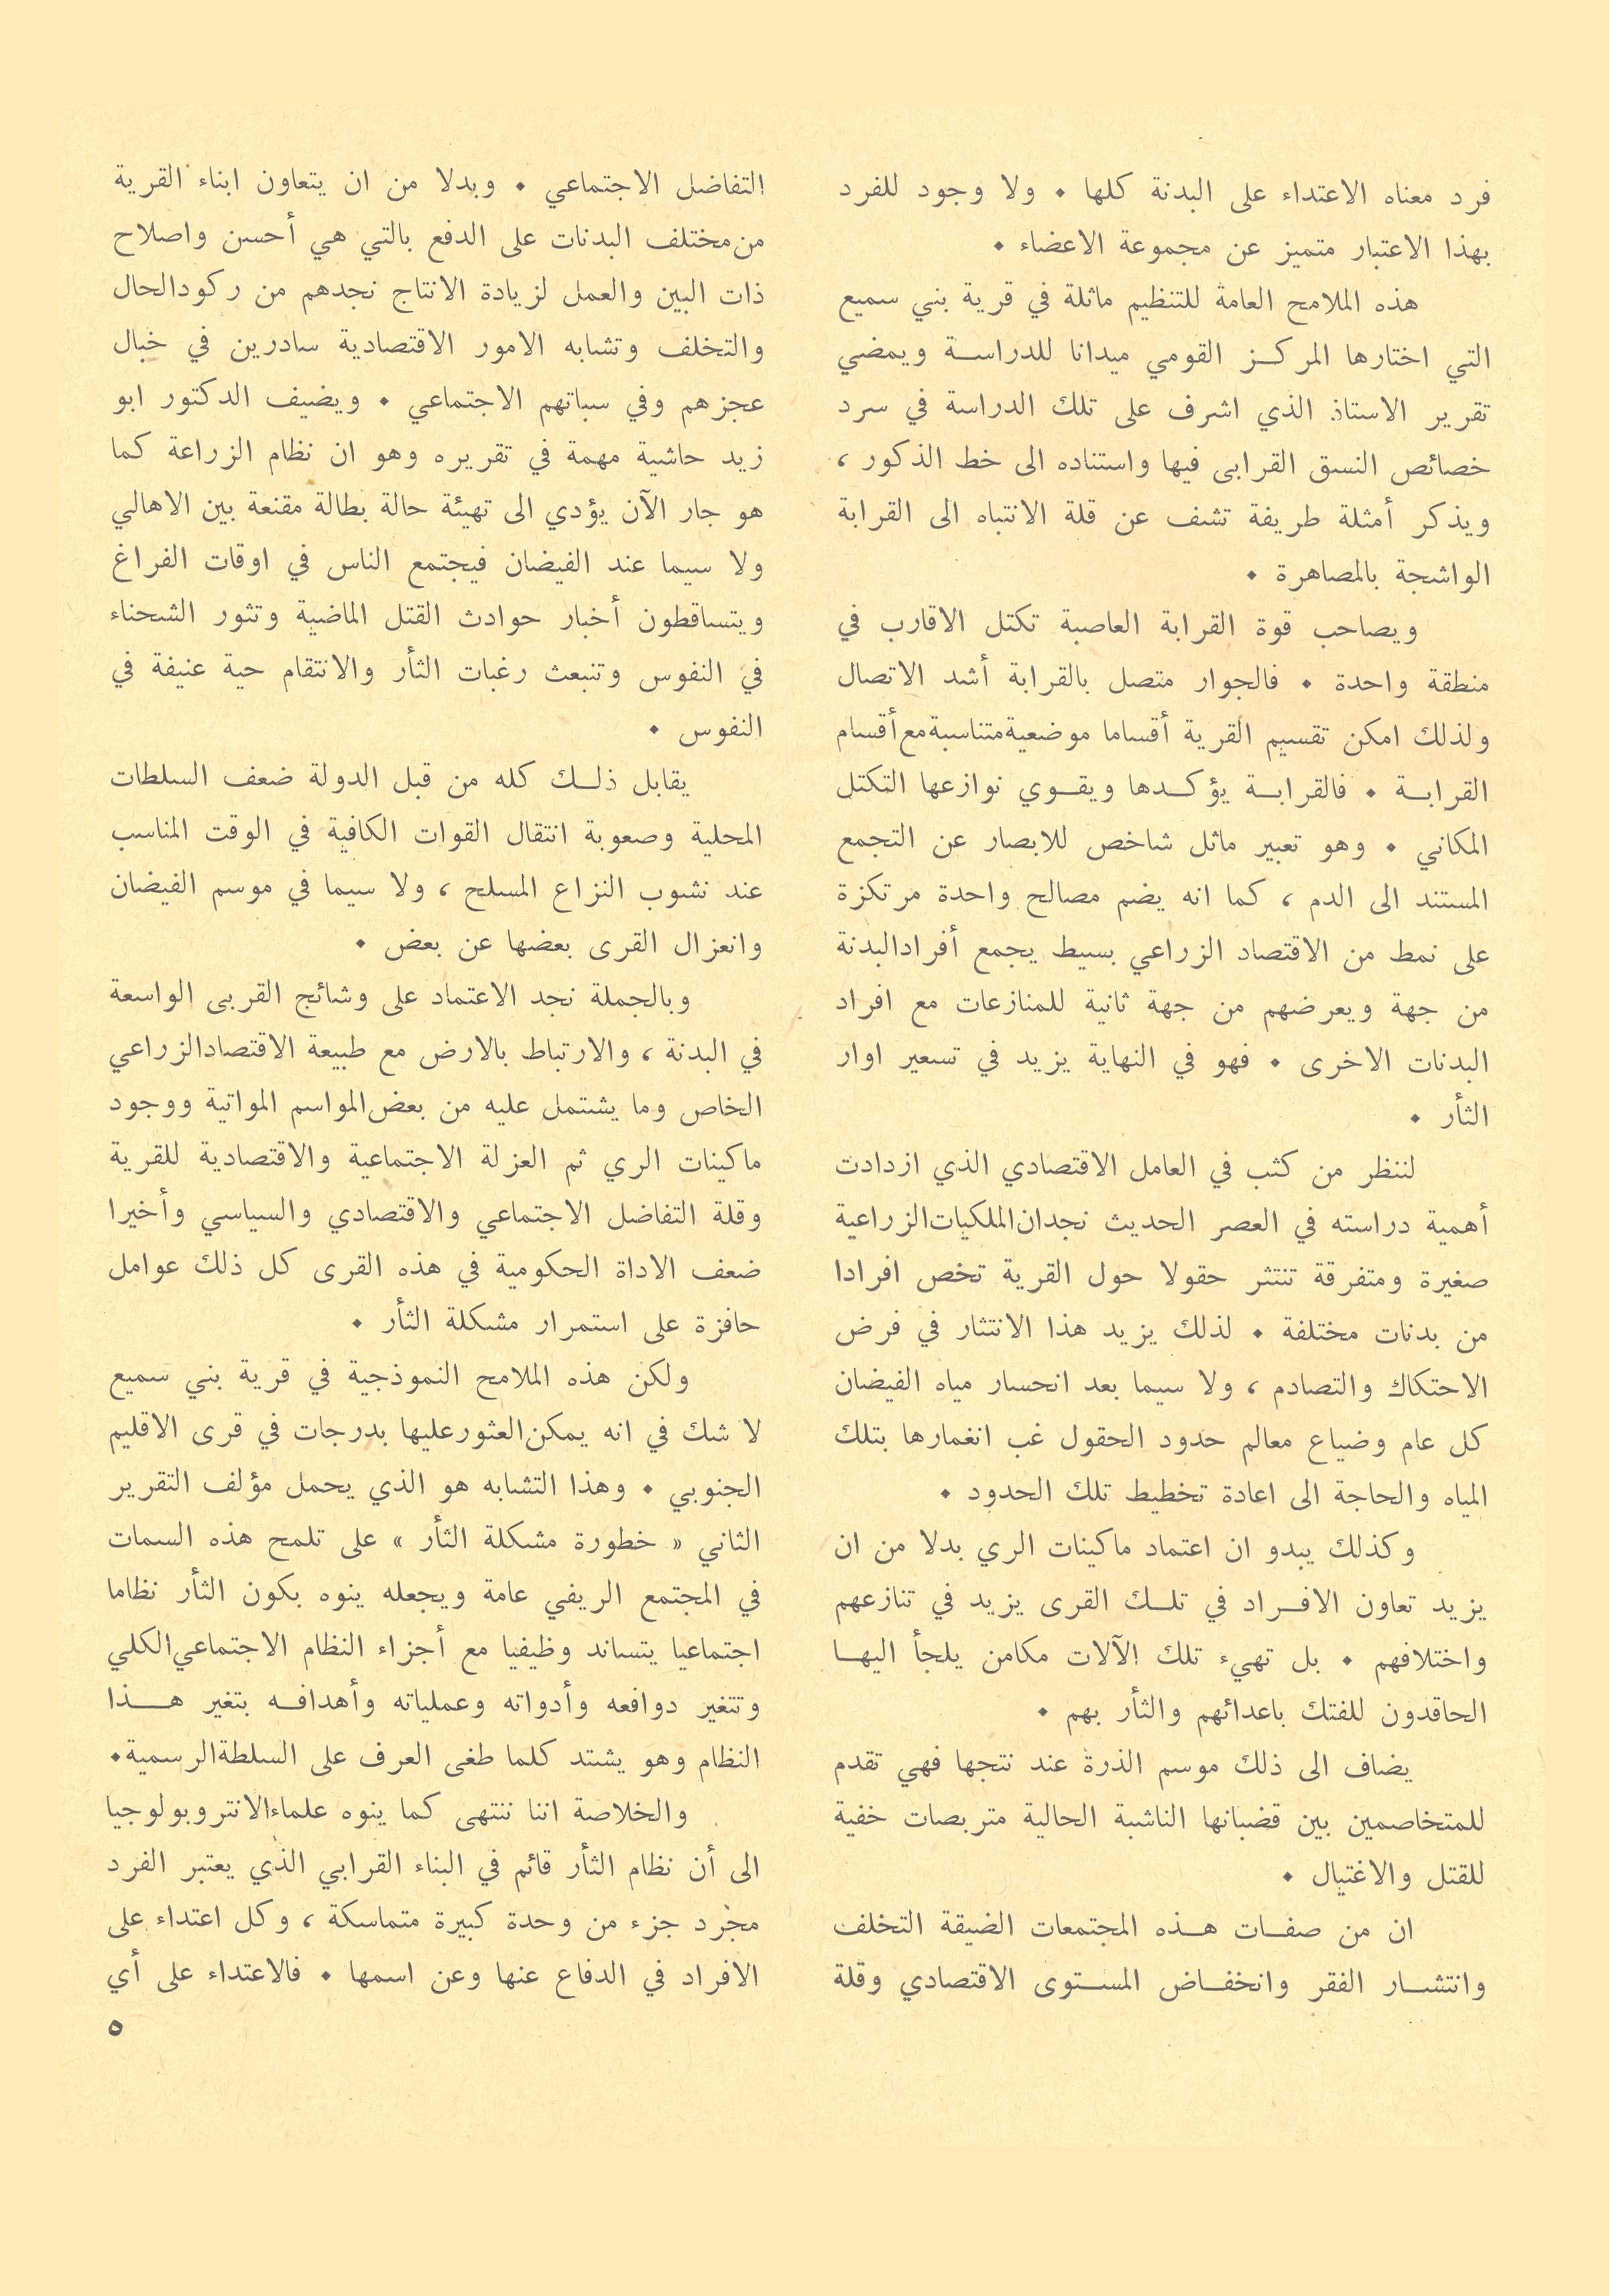 فرد معناه الاعتداء على البدنة كلها • ولا وجود للفرد
بهذا الاعتبار متميز عن مجموعة الاعضاء •
هذه الملامح العامة للتنظيم ماثلة في قرية بني سميع
التي اختارها المركز القومي ميدانا للدراسة ويمضي
تقرير الاستاذ الذي اشرف على تلك الدراسة في سرد
خصائص النسق القرابى فيها واستناده الى خط الذكور ،
ويذكر أمثلة طريفة تشف عن قلة الانتباه الى القرابة
الواشجة بالمصاهرة •
ويصاحب قوة القرابة العاصبة تكتل الاقارب في
منطقة واحدة • فالجوار متصل بالقرابة أشد الاتصال
ولذلك امكن تقسيم القرية أقساما موضعية متناسبة مع أقسام
القرابة • فالقرابة يؤكدها ويقوي نوازعها التكتل
المكاني • وهو تعبير ماثل شاخص للابصار عن التجمع
المستند الى الدم ، كما انه يضم مصالح واحدة مرتكزة
على نمط من الاقتصاد الزراعي بسيط يجمع أفراد البدنة
من جهة ويعرضهم من جهة ثانية للمنازعات مع افراد
البدنات الاخرى • فهو في النهاية يزيد في تسعير اوار
الثأر •
لننظر من كثب في العامل الاقتصادي الذي ازدادت
أهمية دراسته في العصر الحديث نجد ان الملكيات الزراعية
صغيرة ومتفرقة تنتثر حقولا حول القرية تخص افرادا
من بدنات مختلفة • لذلك يزيد هذا الانتثار في فرض
الاحتكاك والتصادم ، ولا سيما بعد انحسار مياه الفيضان
كل عام وضياع معالم حدود الحقول غب انغمارها بتلك
المياه والحاجة الى اعادة تخطيط تلك الحدود •
وكذلك يبدو ان اعتماد ماكينات الري بدلا من ان
يزيد تعاون الافراد في تلك القرى يزيد في تنازعهم
واختلافهم • بل تهيء تلك الآلات مكامن يلجأ اليها
الحاقدون للفتك باعدائهم والثأر بهم •
يضاف الى ذلك موسم الذرة عند نتجها فهي تقدم
للمتخاصمين بين قضبانها الناشبة الحالية متربصات خفية
للقتل والاغتيال •
ان من صفات هذه المجتمعات الضيقة التخلف
وانتشار الفقر وانخفاض المستوى الاقتصادي وقلة
التفاضل الاجتماعي • وبدلا من ان يتعاون ابناء القرية
من مختلف البدنات على الدفع بالتي هي أحسن واصلاح
ذات البين والعمل لزيادة الانتاج نجدهم من ركود الحال
والتخلف وتشابه الامور الاقتصادية سادرين في خبال
عجزهم وفي سباتهم الاجتماعي • ويضيف الدكتور ابو
زيد حاشية مهمة في تقريره وهو ان نظام الزراعة كما
هو جار الآن يؤدي الى تهيئة حالة بطالة مقنعة بين الاهالي
ولا سيما عند الفيضان فيجتمع الناس في اوقات الفراغ
ويتساقطون أخبار حوادث القتل الماضية وتثور الشحناء
في النفوس وتنبعث رغبات الثأر والانتقام حية عنيفة في
النفوس •
يقابل ذلك كله من قبل الدولة ضعف السلطات
المحلية وصعوبة انتقال القوات الكافية في الوقت المناسب
عند نشوب النزاع المسلح ، ولا سيما في موسم الفيضان
وانعزال القرى بعضها عن بعض •
وبالجملة نجد الاعتماد على وشائج القربى الواسعة
في البدنة ، والارتباط بالارض مع طبيعة الاقتصاد الزراعي
الخاص وما يشتمل عليه من بعض المواسم المواتية ووجود
ماكينات الري ثم العزلة الاجتماعية والاقتصادية للقرية
وقلة التفاضل الاجتماعي والاقتصادي والسياسي وأخيرا
ضعف الاداة الحكومية في هذه القرى كل ذلك عوامل
حافزة على استمرار مشكلة الثأر •
ولكن هذه الملامح النموذجية في قرية بني سميع
لا شك في انه يمكن العثور عليها بدرجات في قرى الاقليم
الجنوبي • وهذا التشابه هو الذي يحمل مؤلف التقرير
الثاني « خطورة مشكلة الثأر » على تلمح هذه السمات
في المجتمع الريفي عامة ويجعله ينوه بكون الثأر نظاما
اجتماعيا يتساند وظيفيا مع أجزاء النظام الاجتماعي الكلي
وتتغير دوافعه وأدواته وعملياته وأهدافه بتغير هذا
النظام وهو يشتد كلما طغى العرف على السلطة الرسمية •
والخلاصة اننا ننتهى كما ينوه علماء الانتروبولوجيا
الى أن نظام الثأر قائم في البناء القرابي الذي يعتبر الفرد
مجرد جزء من وحدة كبيرة متماسكة ، وكل اعتداء على
الافراد في الدفاع عنها وعن اسمها • فالاعتداء على أي
٥